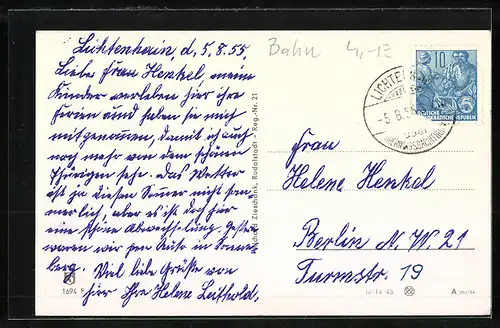 Lichtenhain, d. 5.8.55,
Bahn 4,-
Liebe Frau Henkel, meine
Kinder verleben hier ihre
Ferien und haben sie mich
mitgenommen, damit ich auch
noch mehr von dem schönen
Thüringen sehe. Das Wetter
ist ja diesen Sommer nicht som-
merlich, aber es ist doch hier
eine schöne Abwechselung. Gestern
waren wir per Kiste in Sonne-
berg. Viel liebe Grüße von
hier Ihre Helene Leithold,
1694
Zieschank, Rudolstadt - Reg.-Nr. 21
10
DEUTSCHE
DEMOKRATISCHE REPUBLIK
LICHTENHAIN
-5.8.55
Frau
Helene Henkel
Berlin N.W. 21
Turmstr. 19
IV-14-45
A